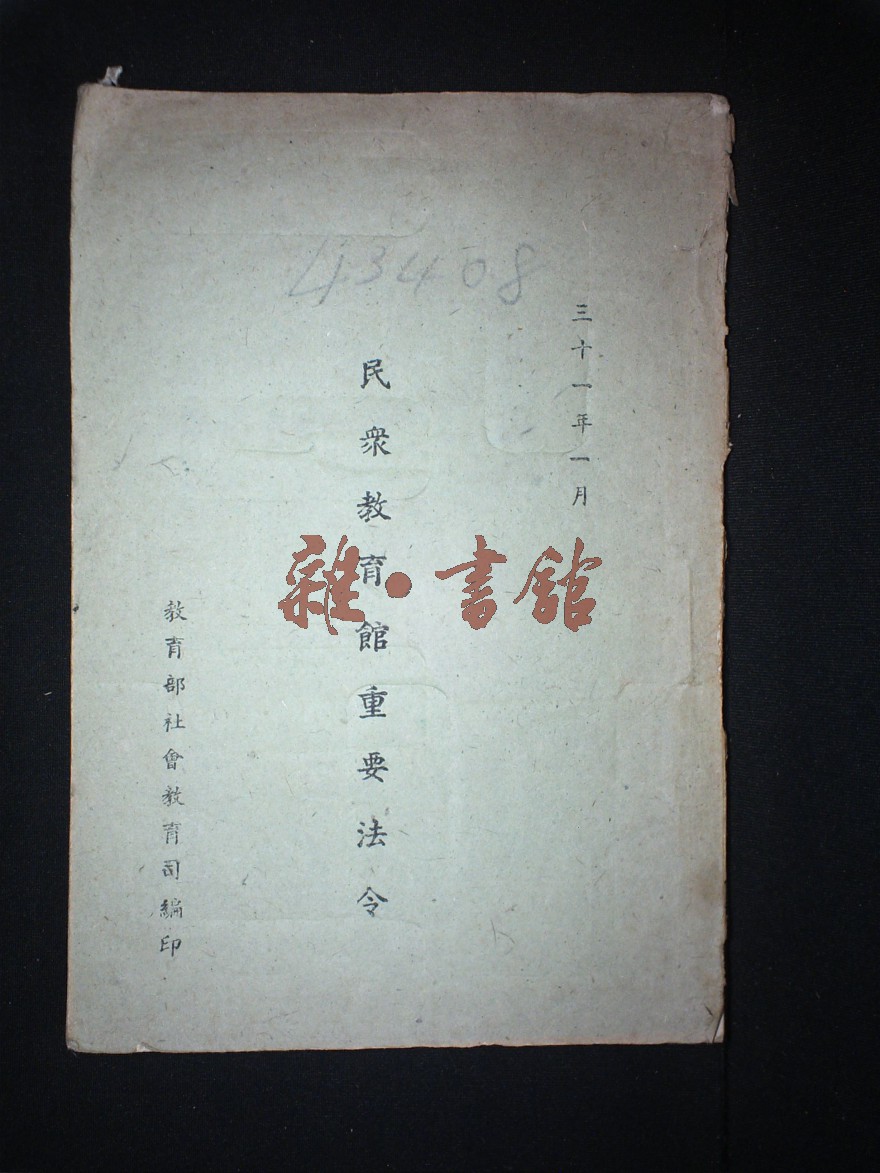 43408
三十一年一月
民衆教育館重要法令
教育部社會教育司編印
雜·書館